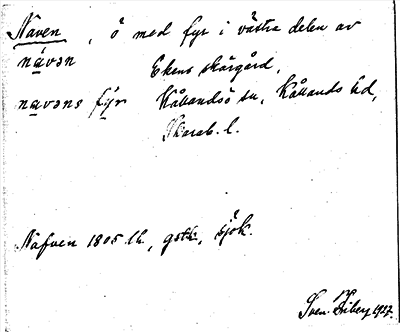 Naven, ö med fyr i västra delen av
návən Ekens skärgård,
navəns fýr Kållandsö sn, Kållands hd,
Skarab. l.
Näfven 1805 lk., gotk., sjök.
Sven 1927.